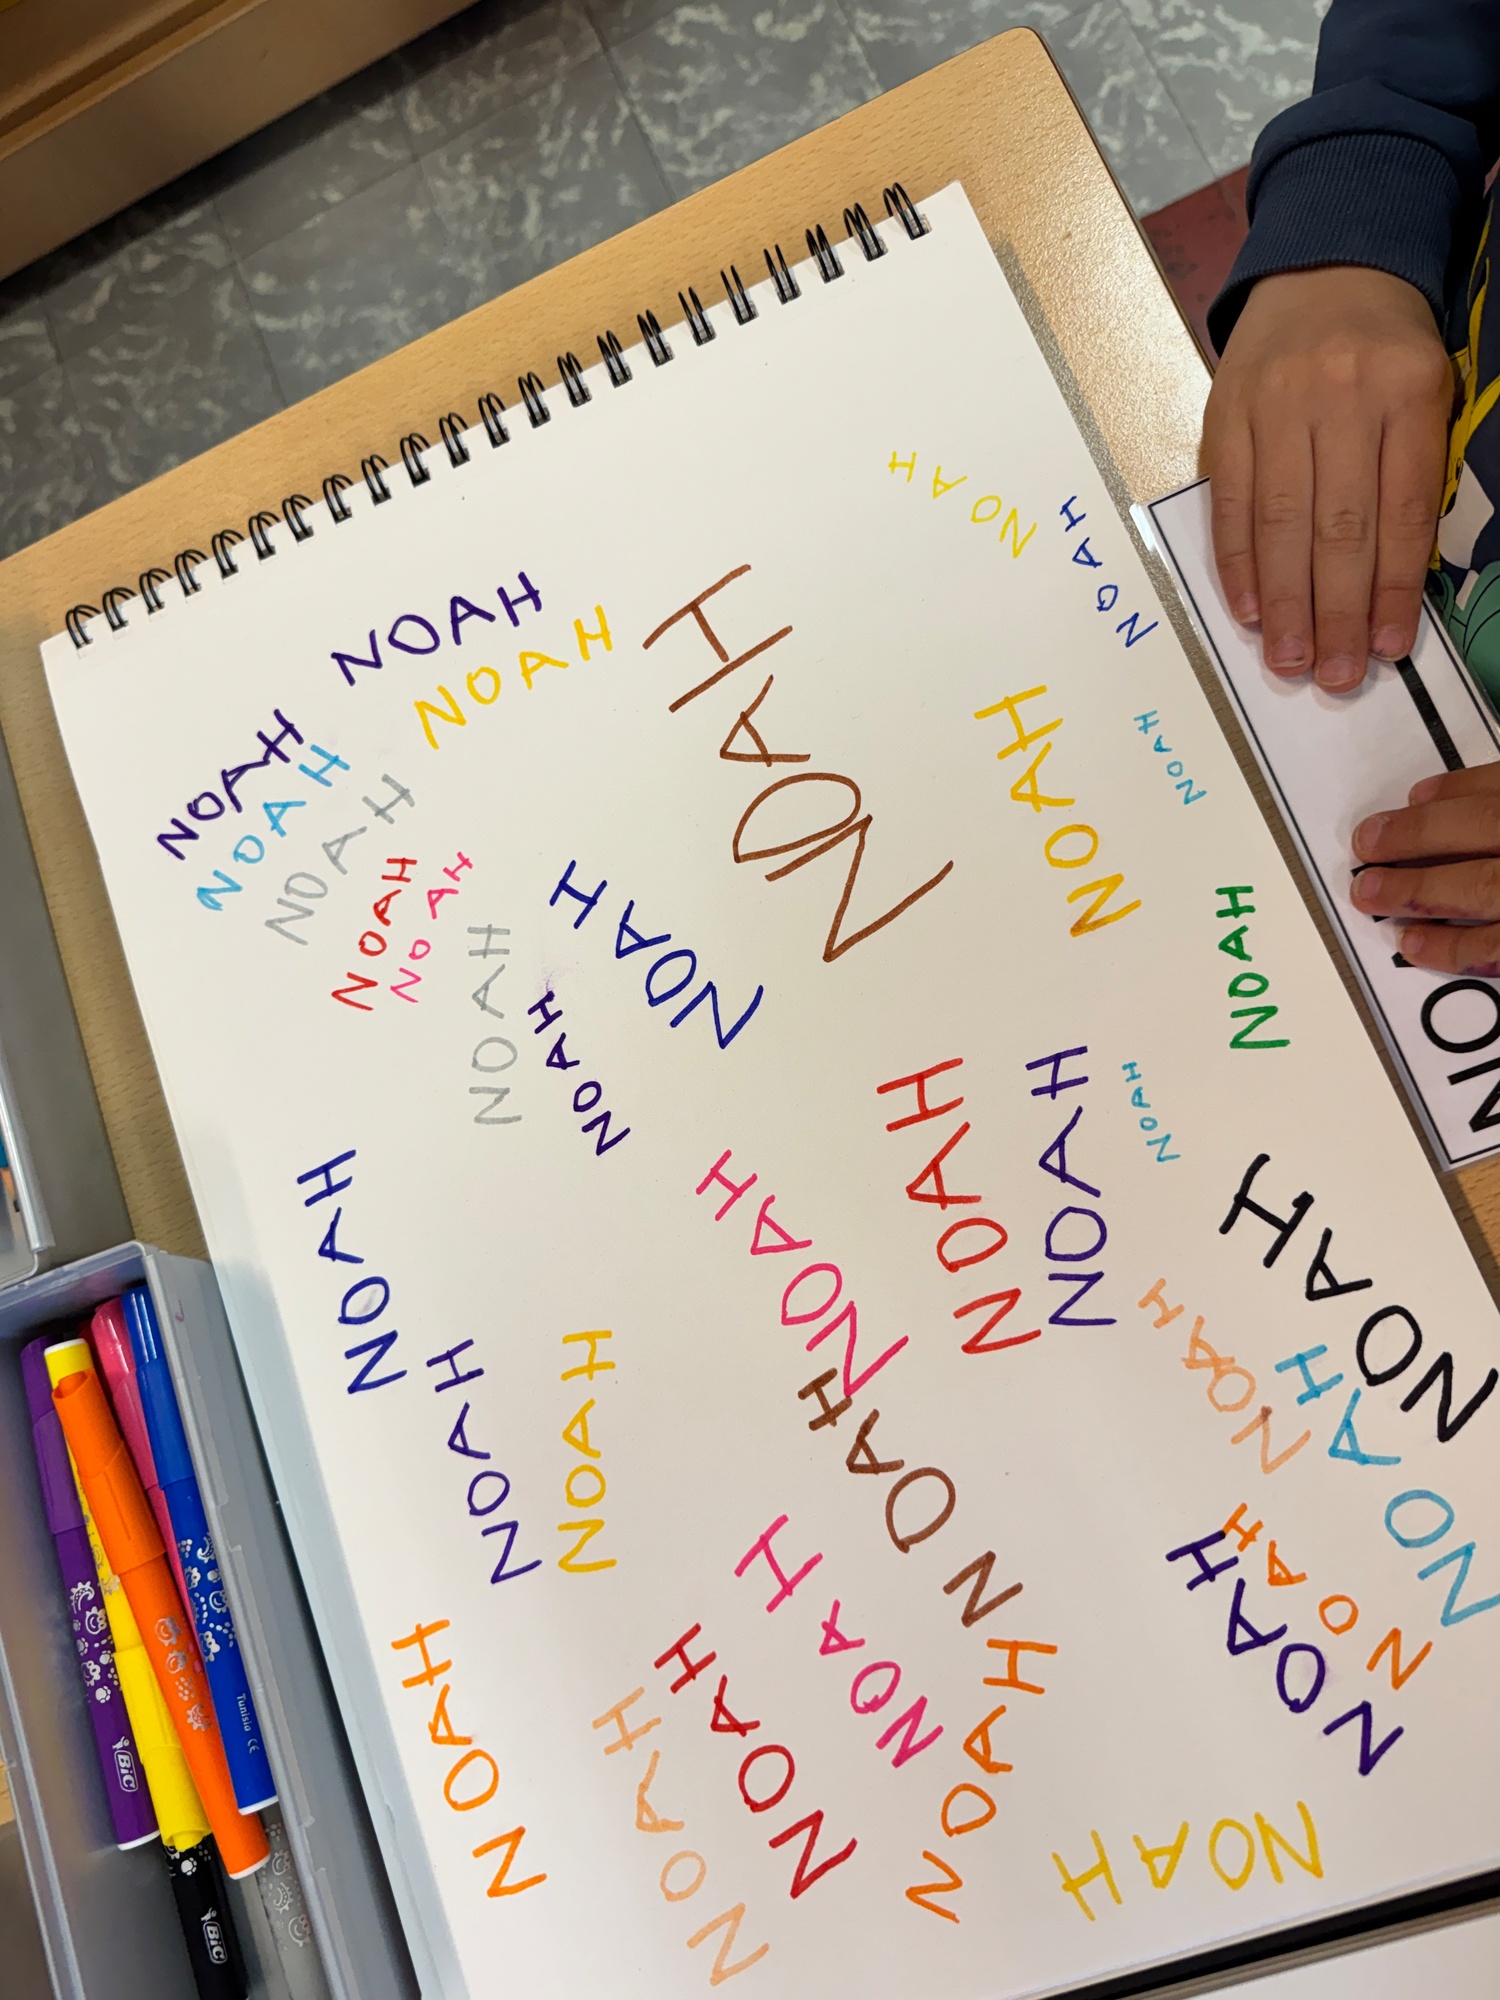 NOAH
NOAH
NOAH
NOAH
NOAH
NOAH
NOAH
NOAH
NOAH
NOAH
NOAH
NOAH
NOAH
NOAH
NOAH
NOAH
NOAH
NOAH
NOAH
NOAH
NOAH
NOAH
NOAH
NOAH
NOAH
NOAH
NOAH
NOAH
NOAH
NOAH
NOAH
NOAH
NOAH
NOAH
NOAH
NO
Tunisia CE
BiC
BiC